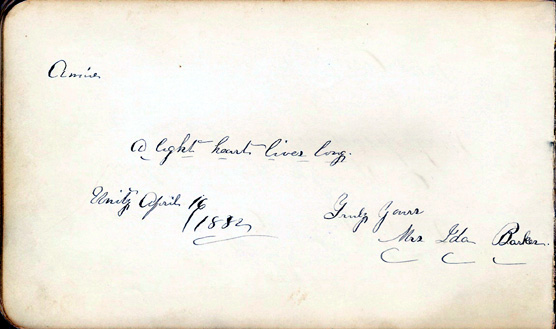 Annie
A light heart lives long.
Unity April 16
1882
Truly Yours
Mrs Ida Barker.